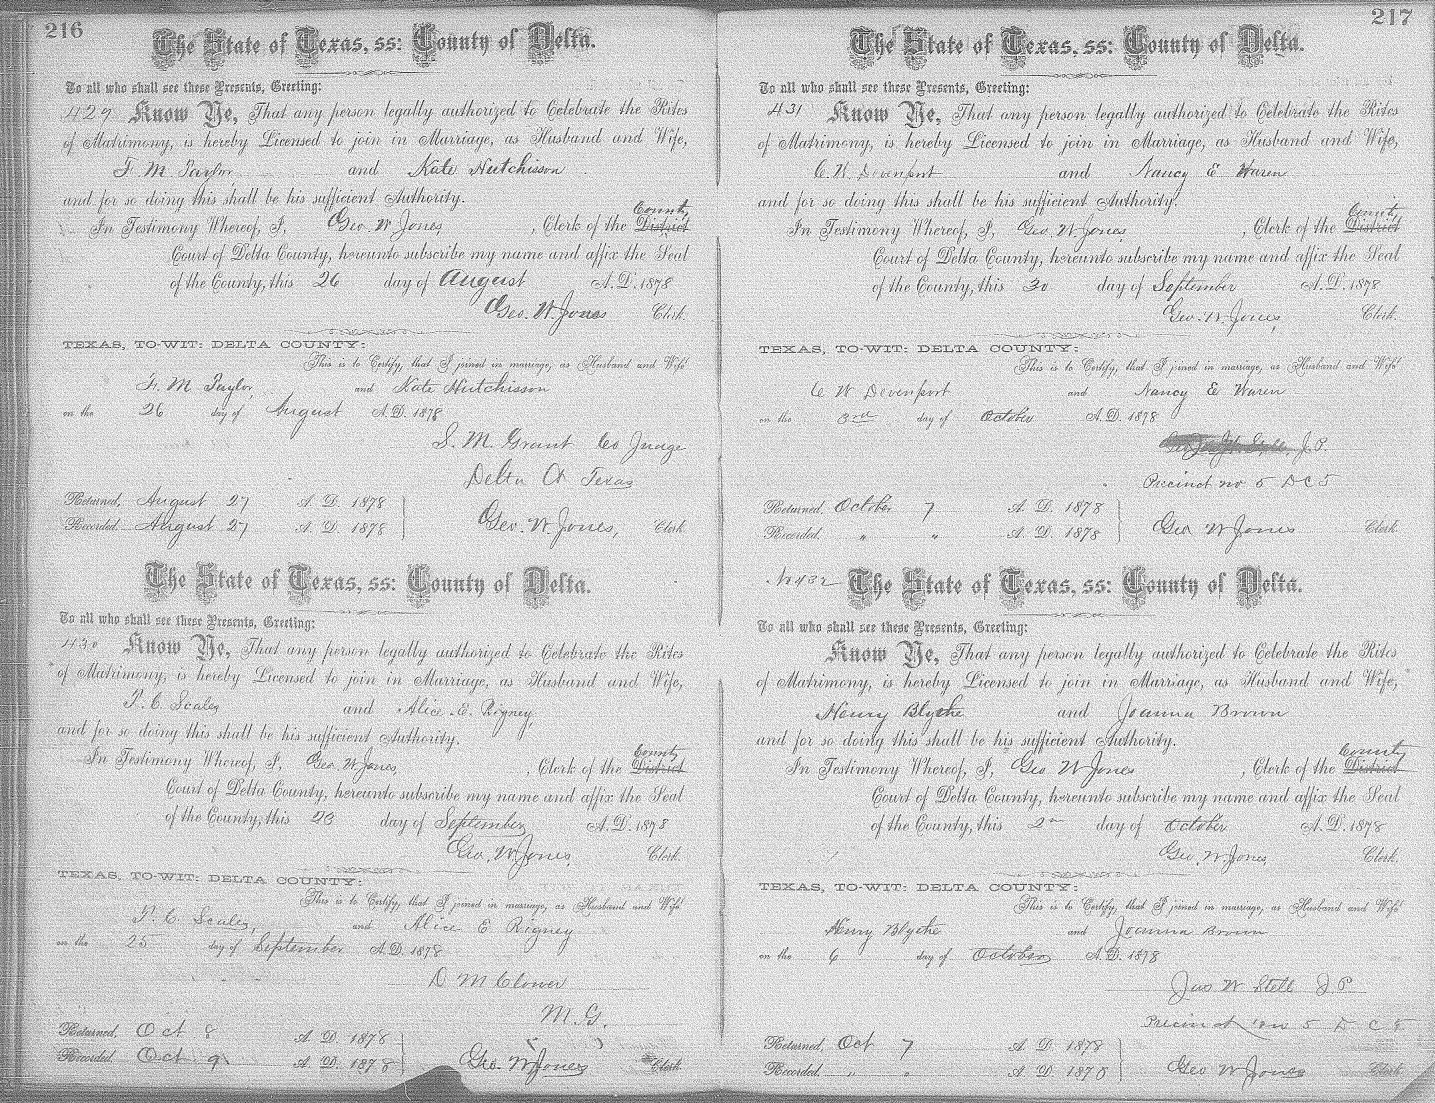 216
The State of Texas, ss: County of Delta.
To all who shall see these Presents, Greeting:
429 Know Ye, That any person legally authorized to Celebrate the Rites
of Matrimony, is hereby Licensed to join in Marriage, as Husband and Wife,
F. M. Taylor, and Kate Hutchisson
and for so doing this shall be his sufficient Authority.
County
In Testimony Whereof, I, Geo. W Jones, , Clerk of the District
Court of Delta County, hereunto subscribe my name and affix the Seal
of the County, this 26 day of August A. D. 1878
Geo. W. Jones Clerk.
TEXAS, TO-WIT: DELTA COUNTY:
This is to Certify, that I joined in marriage, as Husband and Wife
F. M Taylor, and Kate Hutchisson
on the 26 day of August A. D. 1878
S. M. Grant Co Judge
Delta Co Texas
Returned, August 27 A. D. 1878
Recorded. August 27 A. D. 1878 Geo. W Jones, Clerk
The State of Texas, ss: County of Delta.
To all who shall see these Presents, Greeting:
430 Know Ye, That any person legally authorized to Celebrate the Rites
of Matrimony, is hereby Licensed to join in Marriage, as Husband and Wife,
C. Scales and Alice E. Rigney
and for so doing this shall be his sufficient Authority.
County
In Testimony Whereof, I, Geo. W Jones, , Clerk of the District
Court of Delta County, hereunto subscribe my name and affix the Seal
of the County, this 23 day of September A. D. 1878
Geo. W Jones, Clerk.
TEXAS, TO-WIT: DELTA COUNTY:
This is to Certify, that I joined in marriage, as Husband and Wife
C. Scales, and Alice E Rigney
on the 25 day of September A. D. 1878
D M Clower
M. G.
Returned, Oct 8 A. D. 1878
Recorded. Oct 9 A. D. 1878 Geo. W Jones Clerk
217
The State of Texas, ss: County of Delta.
To all who shall see these Presents, Greeting:
431 Know Ye, That any person legally authorized to Celebrate the Rites
of Matrimony, is hereby Licensed to join in Marriage, as Husband and Wife,
C. W. Devenport and Nancy E Waren
and for so doing this shall be his sufficient Authority.
County
In Testimony Whereof, I, Geo. W Jones, , Clerk of the District
Court of Delta County, hereunto subscribe my name and affix the Seal
of the County, this 30 day of September A. D. 1878
Geo. W. Jones, Clerk.
TEXAS, TO-WIT: DELTA COUNTY:
This is to Certify, that I joined in marriage, as Husband and Wife
C W Devenport and Nancy E Waren
on the 3rd day of October A. D. 1878
J. P.
Precinct no 5 D C 5
Returned, October 7 A. D. 1878
Recorded. " " A. D. 1878 Geo W Jones Clerk.
N 432 The State of Texas, ss: County of Delta.
To all who shall see these Presents, Greeting:
Know Ye, That any person legally authorized to Celebrate the Rites
of Matrimony, is hereby Licensed to join in Marriage, as Husband and Wife,
Henry Blythe and Joanna Brown
and for so doing this shall be his sufficient Authority.
County
In Testimony Whereof, I, Geo W Jones , Clerk of the District
Court of Delta County, hereunto subscribe my name and affix the Seal
of the County, this 2nd day of October A. D. 1878
Geo. W Jones, Clerk.
TEXAS, TO-WIT: DELTA COUNTY:
This is to Certify, that I joined in marriage, as Husband and Wife
Henry Blythe and Joanna Brown
on the 6 day of October A. D. 1878
Jas W Stell J. P
Precinct no 5 D C
Returned, Oct 7 A. D. 1878
Recorded. " " A. D. 1878 Geo W Jones Clerk.